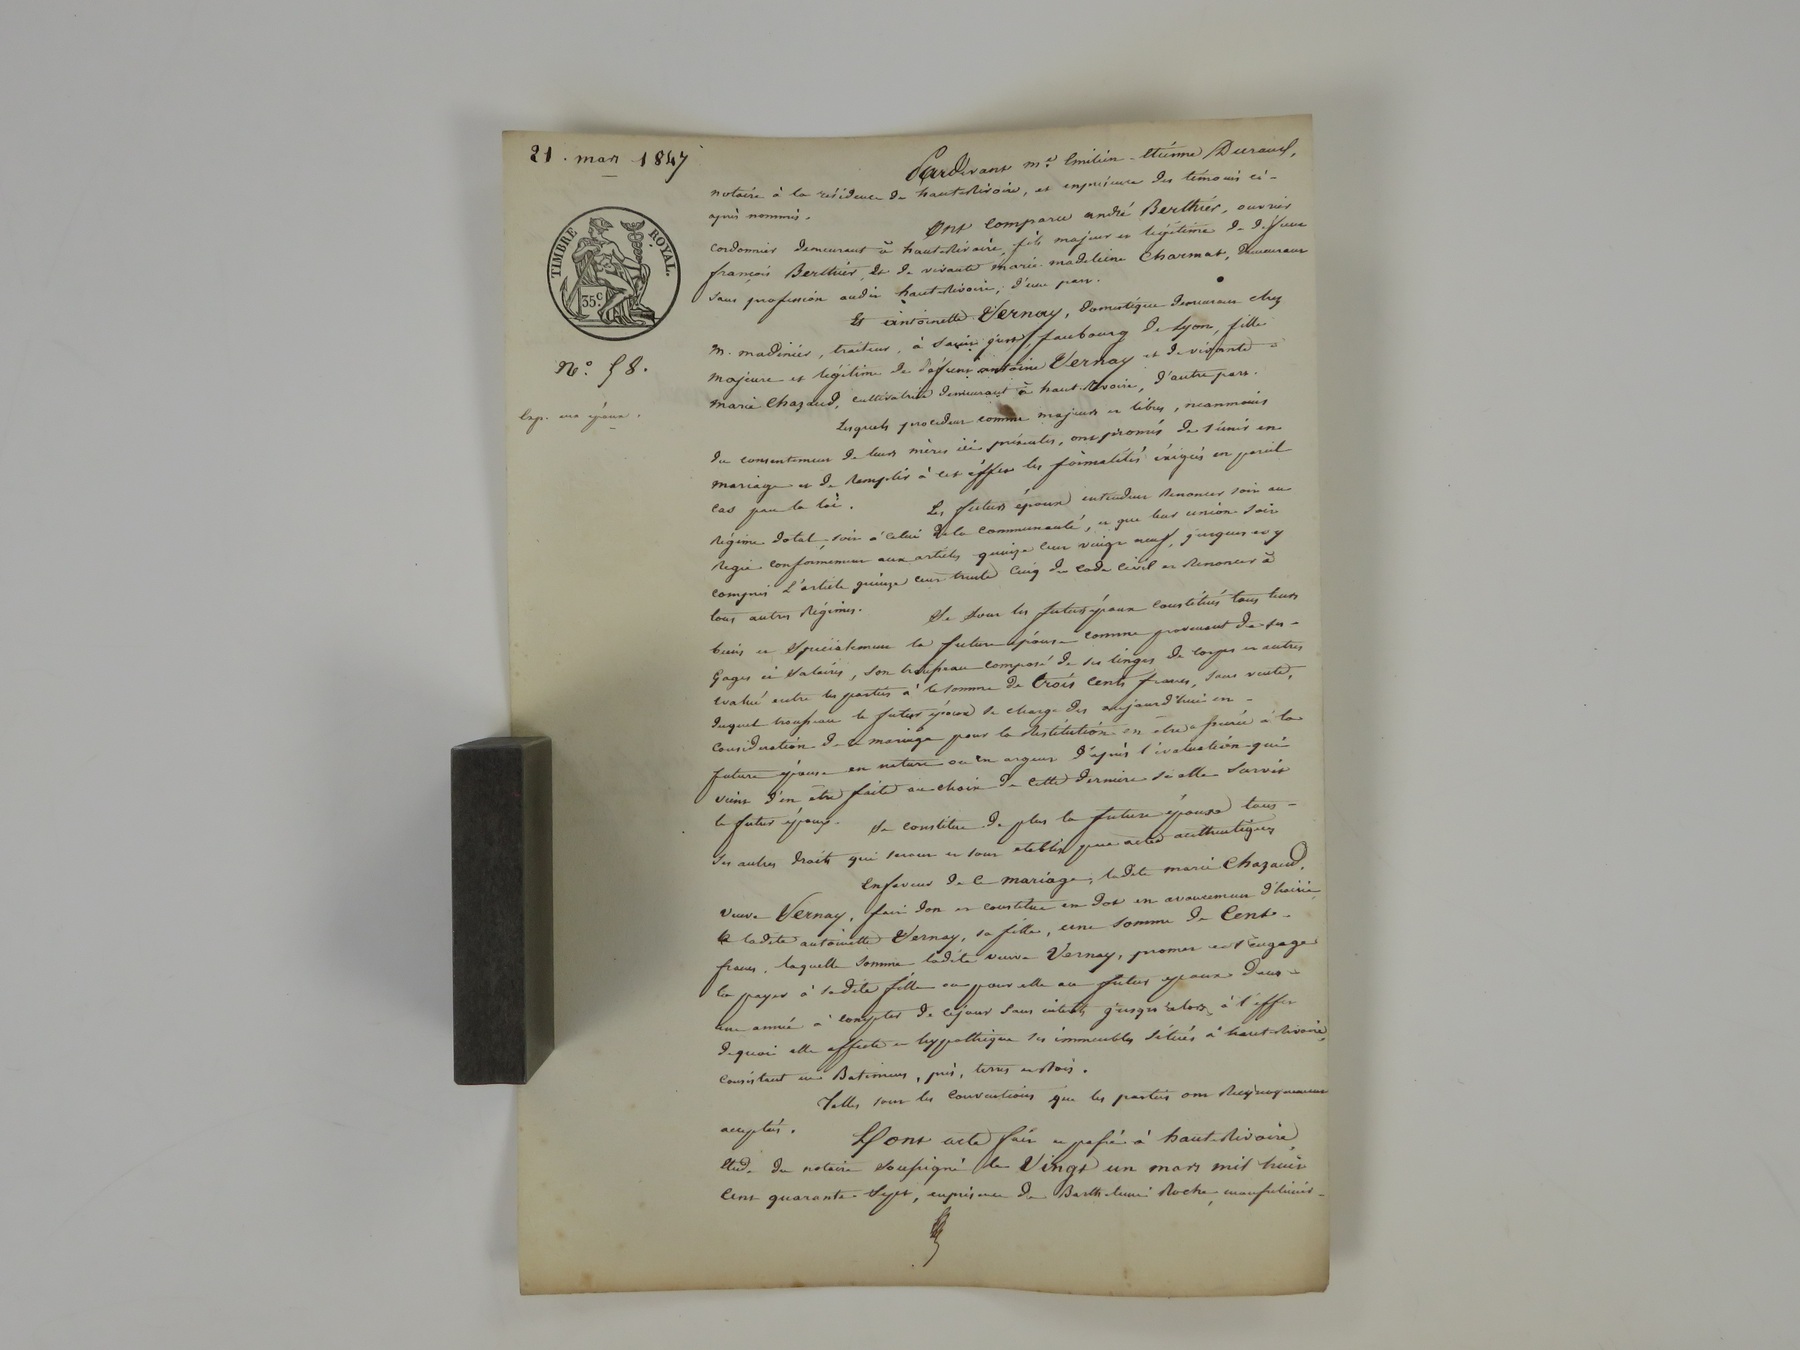 21. mars 1847
TIMBRE ROYAL.
35 c.
N.° 58.
Exp. aux époux.
Pardevant m.e Emilien-Etienne Durand,
notaire à la résidence de haute-Rivoire, et en présence des témoins ci-
après nommés.
Ont comparu andré Berthier, ouvrier
cordonnier demeurant à haute-Rivoire, fils majeur et légitime de défunt
françois Berthier, et de vivante marie-madeleine Charmat, demeurant
sans profession audit haute-Rivoire, d'une part.
Et antoinette Vernay, domestique demeurant chez
M. madinier, traiteur, à Saint-just, faubourg de Lyon, fille
majeure et légitime de défunt antoine Vernay et de vivante
marie Chazaud, cultivatrice demeurant à haute-Rivoire, d'autre part.
Lesquels procédant comme majeurs et libres, néanmoins
du consentement de leurs mères ici présentes, ont promis de s'unir en
mariage et de remplir à cet effet les formalités exigées en pareil
cas par la loi.
Les futurs époux entendent renoncer soit au
régime dotal, soit à celui de la communauté, et que leur union soit
régie conformément aux articles quinze cent vingt neuf, jusques et y
compris l'article quinze cent trente cinq du code civil et renoncer à
tous autres régimes.
Se sont les futurs époux constitués tous leurs
biens et spécialement la future épouse comme provenant de ses
gages et salaires, son trousseau composé de ses linges de corps et autres
évalué entre les parties à la somme de trois cents francs, sans vente,
duquel trousseau le futur époux se charge dès aujourd'hui en
considération de ce mariage pour la restitution en être assurée à la
future épouse en nature ou en argent d'après l'évaluation qui
vient d'en être faite au choix de cette dernière si elle survit
le futur époux.
Se constitue de plus la future épouse tous
ses autres droits qui seront et sont établis par actes authentiques
En faveur de ce mariage, ladite marie Chazaud,
veuve Vernay, fait don et constitue en dot en avancement d'hoirie
à ladite antoinette Vernay, sa fille, une somme de Cent
francs, laquelle somme ladite veuve Vernay, promet et s'engage
la payer à sadite fille ou pour elle au futur époux dans
une année à compter de ce jour sans intérêts jusqu'alors, à l'effet
de quoi elle affecte et hypothèque ses immeubles situés à haute-Rivoire,
consistant en Batiments, prés, terres et Bois.
Telles sont les conventions que les parties ont réciproquement
acceptées.
Dont acte fait et passé à haute-Rivoire
étude du notaire soussigné le Vingt un mars mil huit
cent quarante-sept, en présence de Barthelemi Roche,